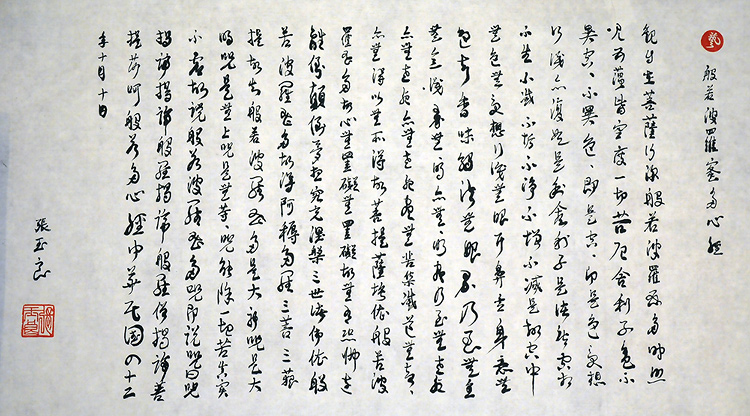 藝
般若波羅蜜多心經
觀自在菩薩行深般若波羅蜜多時照
見五蘊皆空度一切苦厄舍利子色不
異空、不異色、即是空、即是色受想
行識亦復如是舍利子是諸法空相
不生不滅不垢不淨不增不減是故空中
無色無受想行識無眼耳鼻舌身意無
色声香味觸法無眼界乃至
無意識界無無明亦無無明盡乃至無老死
亦無老死盡無苦集滅道無智、
亦無得以無所得故菩提薩埵依般若波
羅蜜多故心無罣礙無罣礙故無有恐怖遠
離顛倒夢想究竟涅槃三世諸佛依般
若波羅蜜多故得阿耨多羅三藐三菩
提故知般若波羅蜜多是大神咒是大
明咒是無上咒是無等、咒能除一切苦真實
不虛故說般若波羅蜜多咒即說咒曰
揭諦揭諦般羅揭諦般羅僧揭諦菩
提莎呵般若多心經中華民國四十三
年十月十日
張玉良